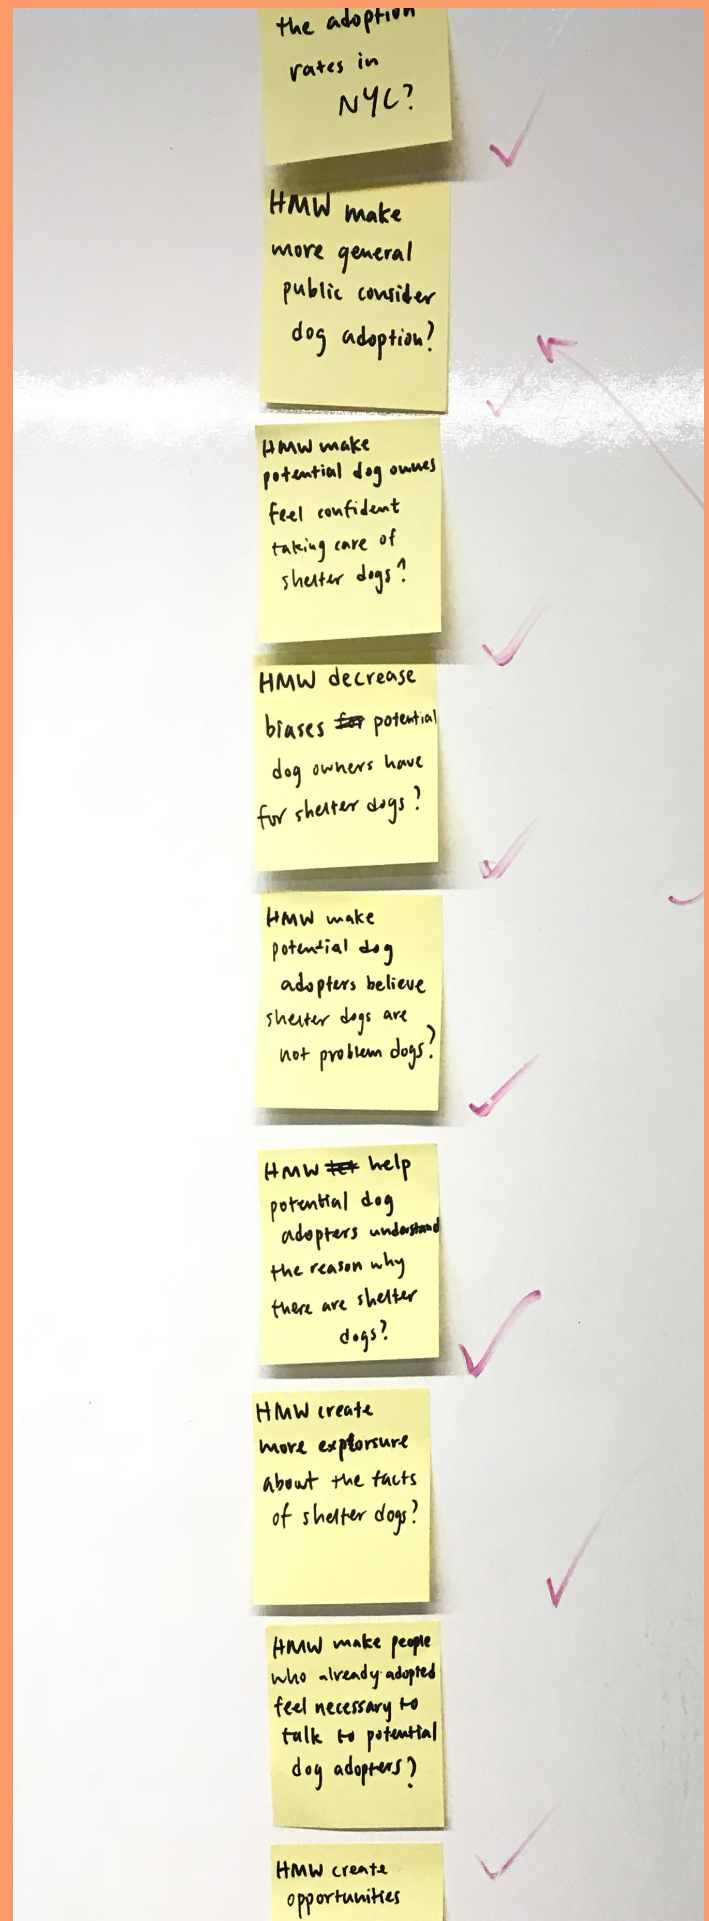 the adoption
rates in
NYC?
HMW make
more general
public consider
dog adoption?
HMW make
potential dog ownes
feel confident
taking care of
shelter dogs?
HMW decrease
biases for potential
dog owners have
for shelter dogs?
HMW make
potential dog
adopters believe
shelter dogs are
not problem dogs?
HMW help
potential dog
adopters understand
the reason why
there are shelter
dogs?
HMW create
more explorsure
about the facts
of shelter dogs?
HMW make people
who already adopted
feel necessary to
talk to potential
dog adopters?
HMW create
opportunities